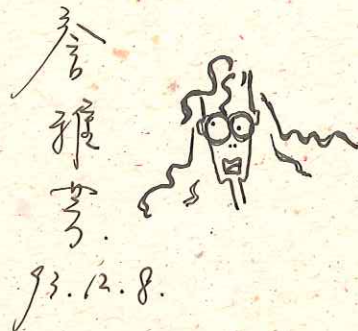 詹雅雯.
93.12.8.